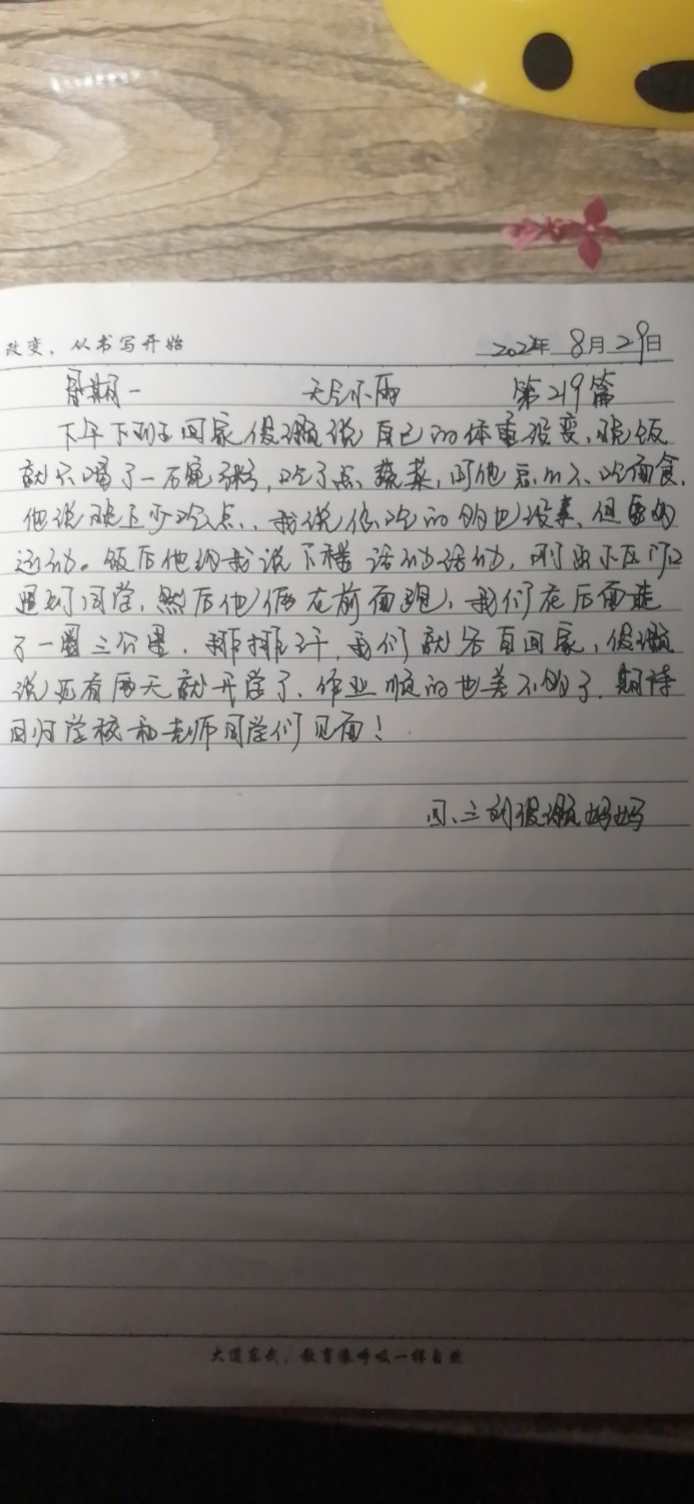 改变，从书写开始
2022年 8月29日
星期一 天气小雨 第219篇
下午下班回家 说自己的体重没变，晚饭
就只喝了一碗粥，吃了点蔬菜，问他怎么不吃面食，
他说晚上少吃点，我说你吃的多也没事，但要多
运动。饭后他约我说下楼活动活动，刚出小区门口
遇到同学，然后他们俩在前面跑，我们在后面走
了一圈三公里，排排汗，我们就各自回家，
说还有两天就开学了，作业 的也差不多了，期待
回归学校和老师同学们见面！
四、三刘 妈妈
大道 ，教育像呼吸一样自然